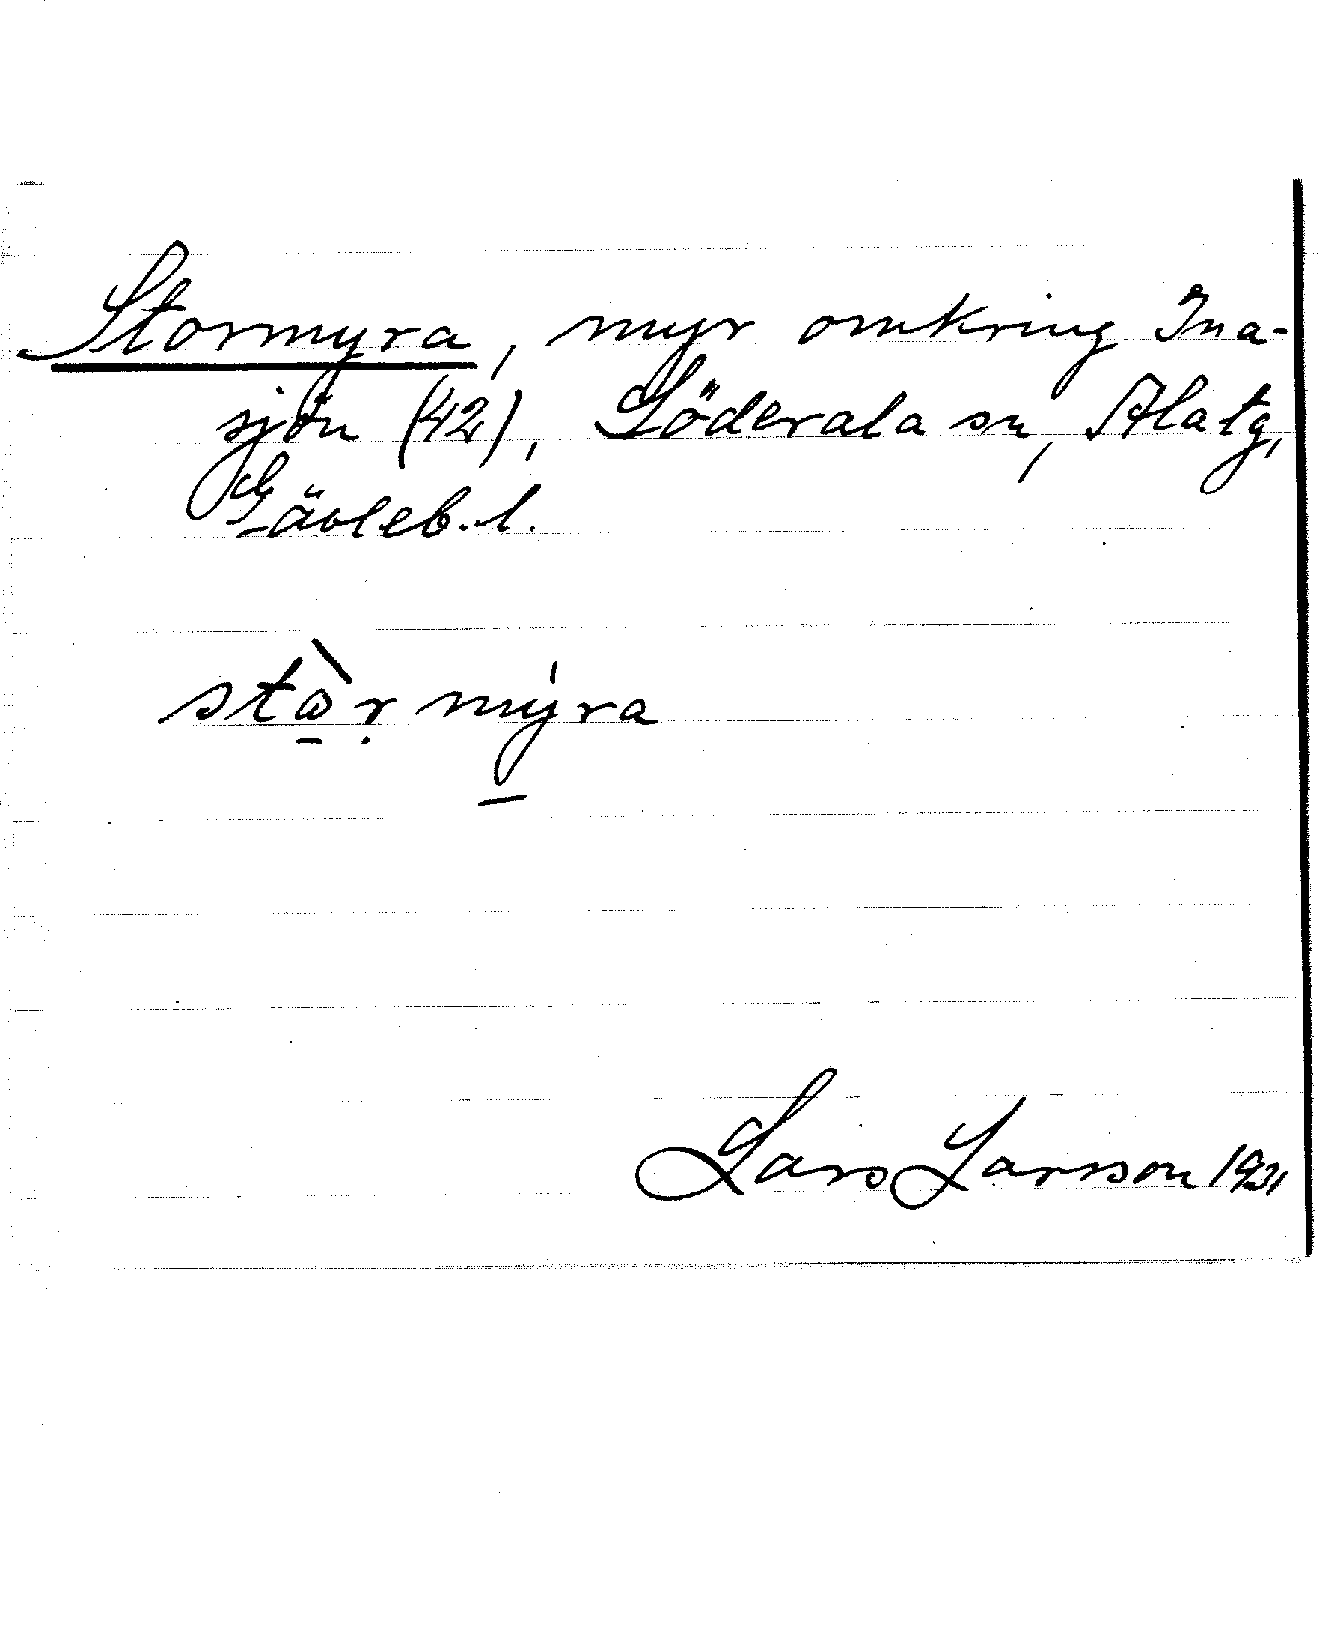 Stormyra, myr omkring Ina-
sjön (42), Söderala sn, Ala tg,
Gävleb. l.
stὼ̠ṛ mý̠ra
Lars Larsson 1931